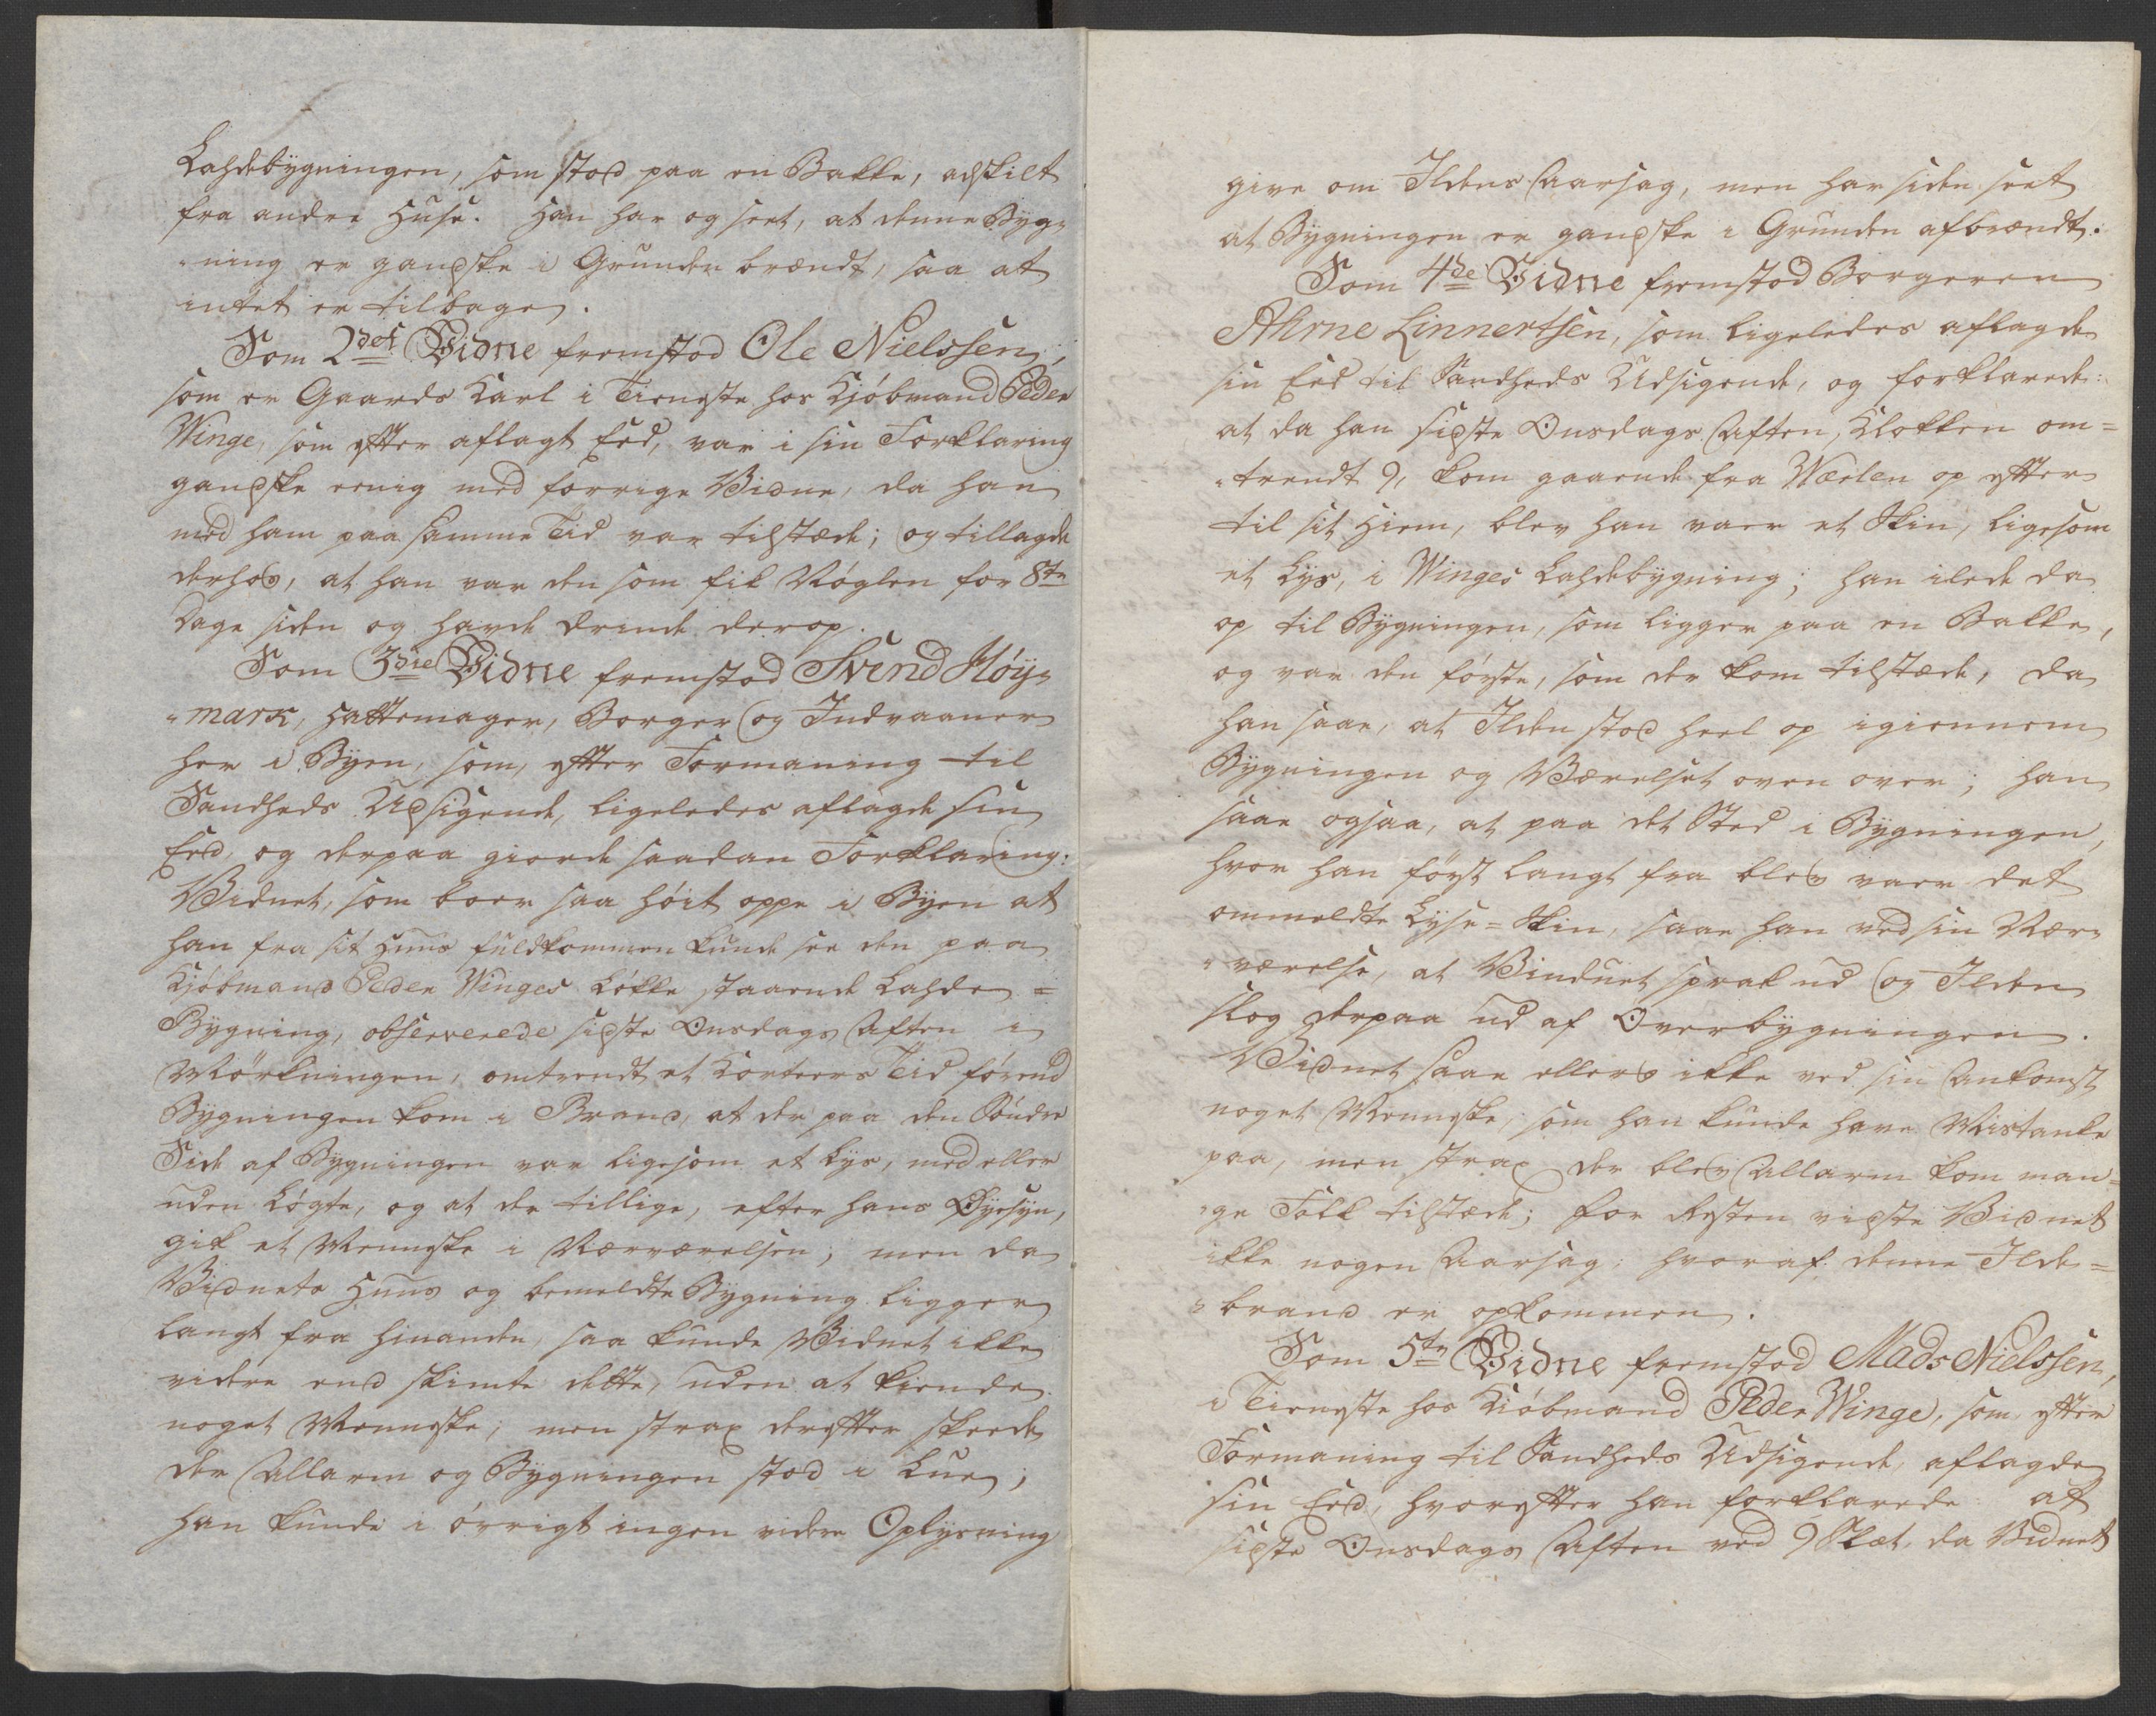 Lahdebÿgningen, som stod paa en Bakke, adskilt
fra andre Huse. Han har og seet, at denne Bÿg-
-ning er gandske i Grunden brændt, saa at
intet er tilbage.
Som 2det Vidne fremstod Ole Nielssen,
som er Gaards Karl i Tieneste hos Kjöbmand Peder
Winge, som efter aflagt Eed, var i sin Forklaring
gandske eenig med forrige Vidne, da han
med ham paa samme Tid var tilstæde; og tillagde
derhos, at han var den som fik Nöglen for 8te
Dage siden og havde Ærinde derop.
Som 3die Vidne fremstod Svend Höÿ-
-mark, Hattemager, Borger og Indvaaner
her i Bÿen, som, efter Formaning til
Sandheds Udsigende, ligeledes aflagde sin
Eed, og derpaa giorde saadan Forklaring:
Vidnet, som boer saa höit oppe i Bÿen at
han fra sit Huus fuldkommen kunde see den paa
Kjöbmand Peder Winges Lökke staaende Lahde=
Bÿgning, observerede sidste Onsdags Aften i
Mörkningen, omtrendt et Korteers Tid förend
Bÿgningen kom i Brand, at der paa den Söndre
Side af Bÿgningen var ligesom et Lÿs, med eller
uden Lögte, og at der tillige, efter hans Øÿesÿn,
gik et Menneske i Nærværelsen; men da
Vidnets Huus og bemeldte Bÿgning ligger
langt fra hinanden, saa kunde Vidnet ikke
videre end skimte dette, uden at kiende
noget Menneske; men strax derefter skeede
der Allarm og Bÿgningen stod i Lue;
han kunde i övrigt ingen videre Oplÿsning
give om Ildens Aarsag, men har siden seet
at Bÿgningen er gandske i Grunden afbrændt.
Som 4de Vidne fremstod Borgeren
Ahrne Linnertsen, som ligeledes aflagde
sin Eed til Sandheds Udsigende, og forklarede:
at da han sidste Onsdags Aften, Klokken om=
-trendt 9, kom gaaende fra Wærlen op efter
til sit Hiem, blev han vaer et Skin, ligesom
et Lÿs, i Winges Lahdebÿgning; han ilede da
op til Bÿgningen, som ligger paa en Bakke,
og var den förste, som der kom tilstæde, da
han saae, at Ilden stod heel op igiennem
Bÿgningen og Værelset oven over; han
saae ogsaa, at paa det Sted i Bÿgningen,
hvor han först langt fra blev vaer det
ommeldte Lÿse=Skin, saae han ved sin Nær-
-værelse, at Vinduet sprak ud og Ilden
slog derpaa ud af Overbÿgningen.
Vidnet saae ellers ikke ved sin Ankomst
noget Menneske, som han kunde have Mistanke
paa, men strax der blev Allarm kom man=
-ge Folk tilstæde; for Resten vidste Vidnet
ikke nogen Aarsag, hvoraf denne Ilde=
-brand er opkommen.
Som 5te Vidne fremstod Mads Nielssen,
i Tieneste hos Kiöbmand Peder Winge, som efter
Formaning til Sandheds Udsigende, aflagde
sin Eed, hvorefter han forklarede at
sidste Onsdags Aften ved 9 Slæt, da Vidnet